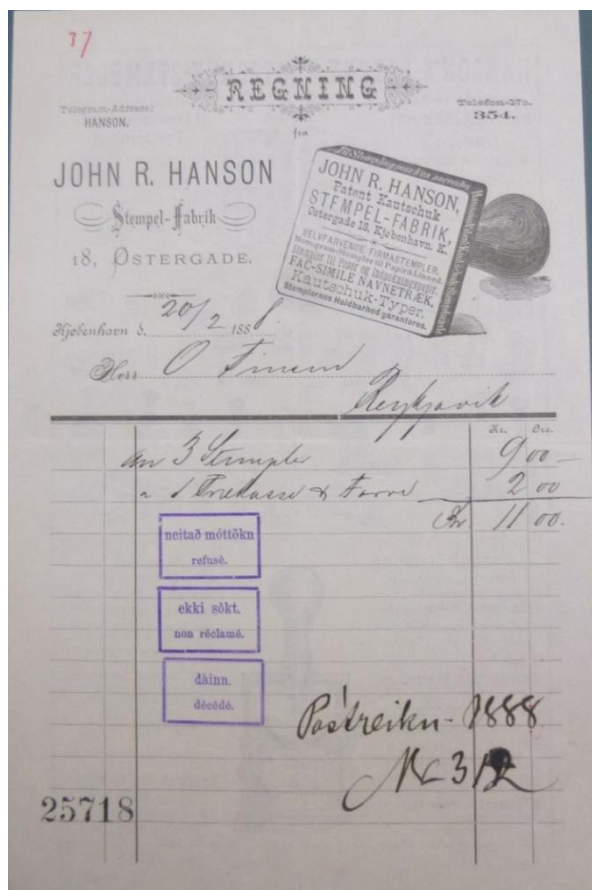 37
REGNING
fra
Telegram-Adresse:
HANSON.
Telefon-No.
354.
JOHN R. HANSON
Stempel-Fabrik
18, ØSTERGADE.
JOHN R. HANSON,
Patent Kautschuk
STEMPEL-FABRIK,
Østergade 18, Kjøbenhavn. K.
SELVFARVENDE FIRMASTEMPLER.
Monogram-Stempler til Papir & Linned.
FAC-SIMILE NAVNETRÆK.
Kautschuk-Typer.
Stemplernes Holdbarhed garanteres.
Kjøbenhavn d. 20/2 1888
Herr O Finsen
Reykjavik
Kr. Øre.
an 3 Stempler 9 00 —
" 1 & Farve 2 00
Kr 11 00.
neitað móttökn
refusé.
ekki sòkt.
non réclamé.
dàinn.
décédé.
Póstreikn - 1888
Nr 312
25718